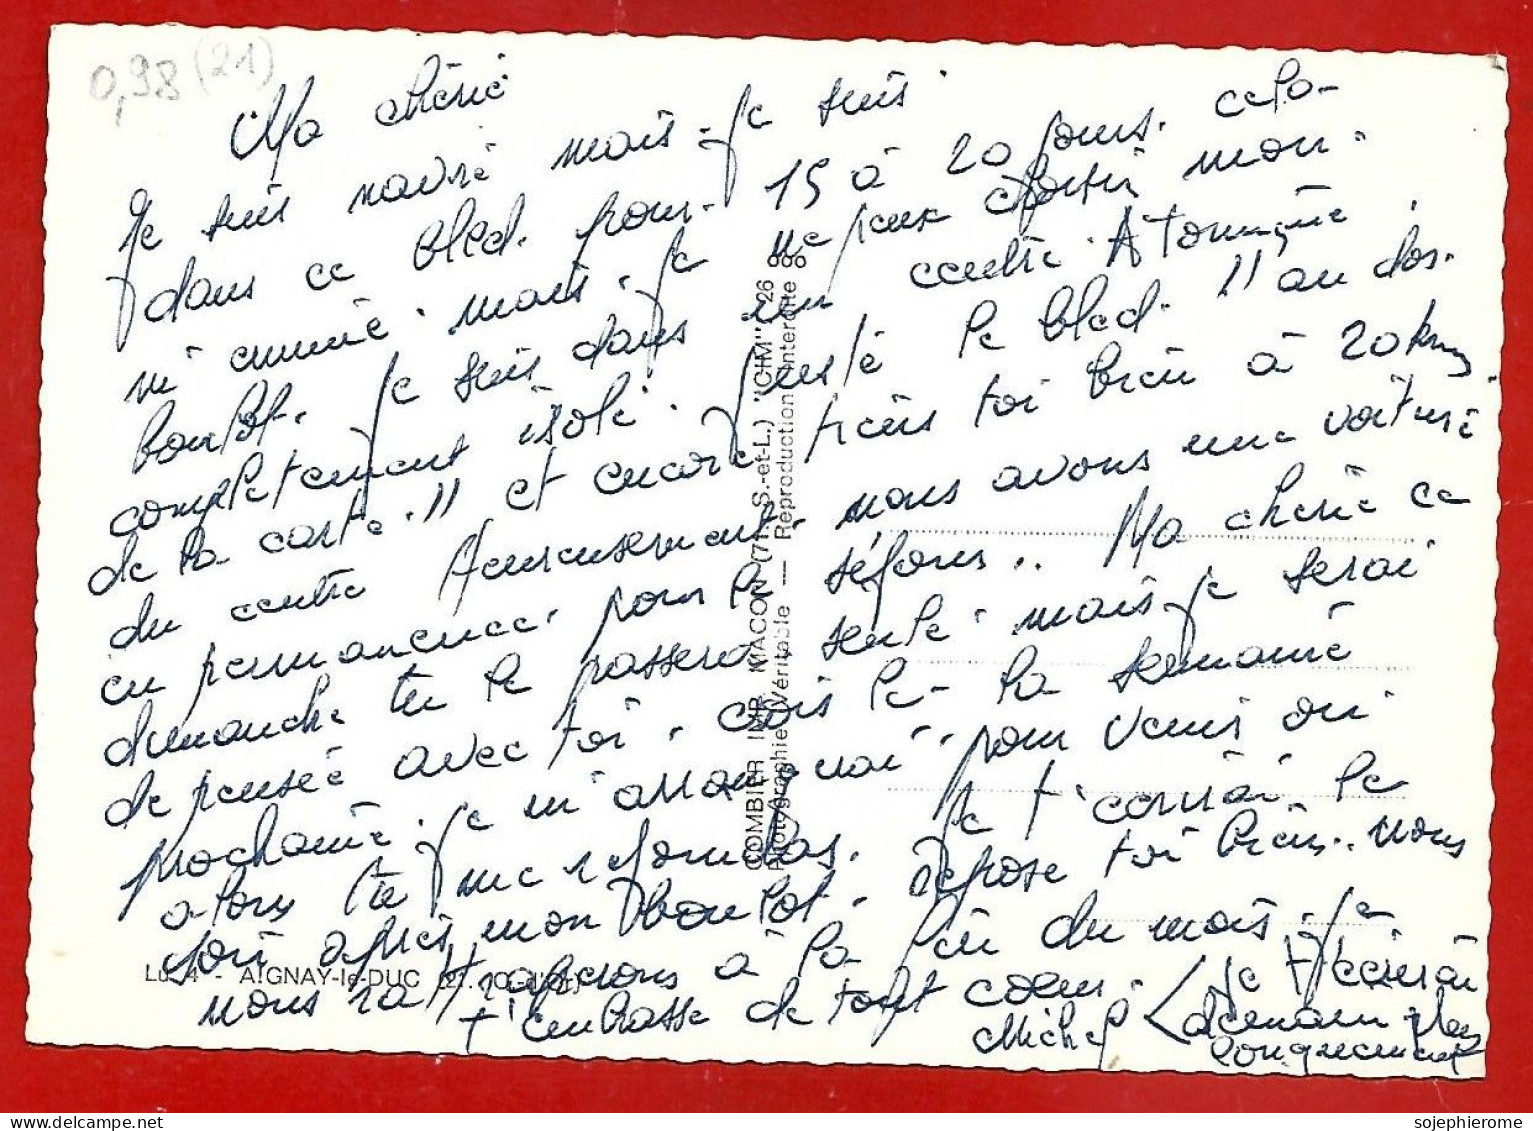 0,98 (21)
Ma chérie
Je suis navré mais je suis
dans ce bled. pour. 15 à 20 jours. cela-
m'ennuie. mais. je ne peux choisir mon.
boulot. je suis dans un centre Atomique.
completement isolé. juste le bled. "au dos.
de la carte." et encore tiens toi bien à 20 km
du centre heureusement. nous avons une voiture
en permanence. pour le séjour.. Ma cherie ce
dimanche tu le passera seule. mais je serai
de pensée avec toi. crois le - la semaine
prochaine. je m'arrangerai. pour venir ou
alors tu me rejoindras. je t'ecrirai le
soir après mon boulot. repose toi bien.. nous
nous rattraperons à la fin du mois. je
t'embrasse de tout coeur.
Michel
Je t'écrirai
demain plus
longuement
COMBIER IMP. MACON (71. S.-et-L.) "CIM" 26
Photographie Véritable — Reproduction interdite
Lu. 4 - AIGNAY-le-DUC (21. C.-d'Or)
sojephierome